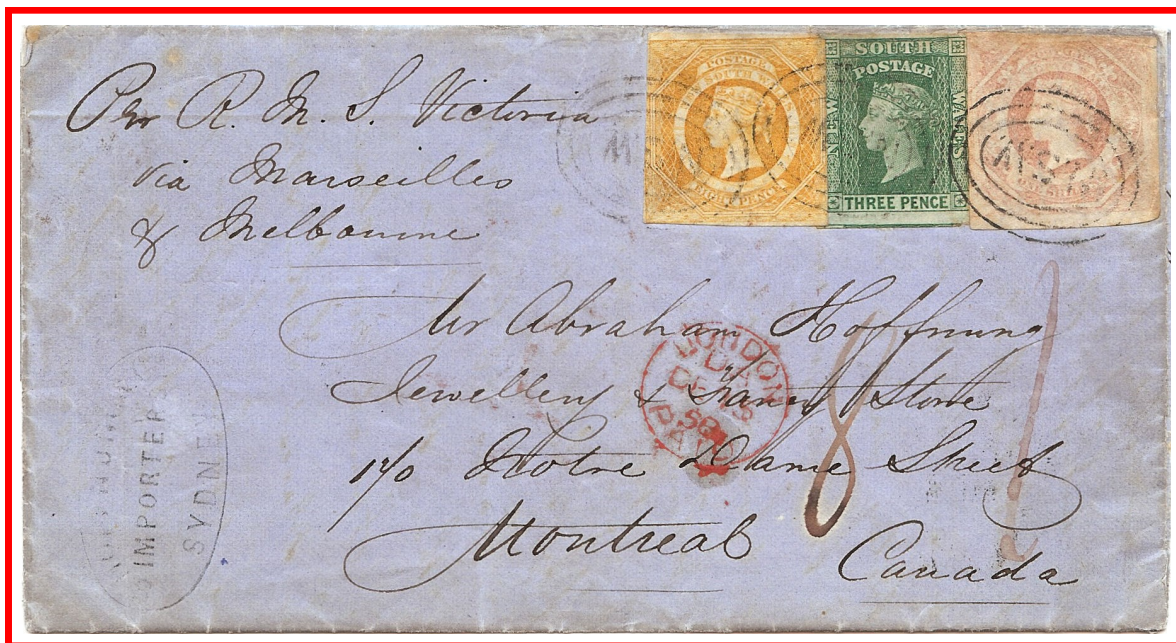 Per R. M. S. Victoria
via Marseilles
& Melbourne
POSTAGE
SOUTH WALES
SOUTH
POSTAGE
NEW
WALES
THREE PENCE
Mr Abraham Hoffnung
Jewellery & Fancy Store
170 Notre Dame Street
Montreal
Canada
LONDON
DE 13
PAID
8
1
IMPORTER
SYDNEY
NSW